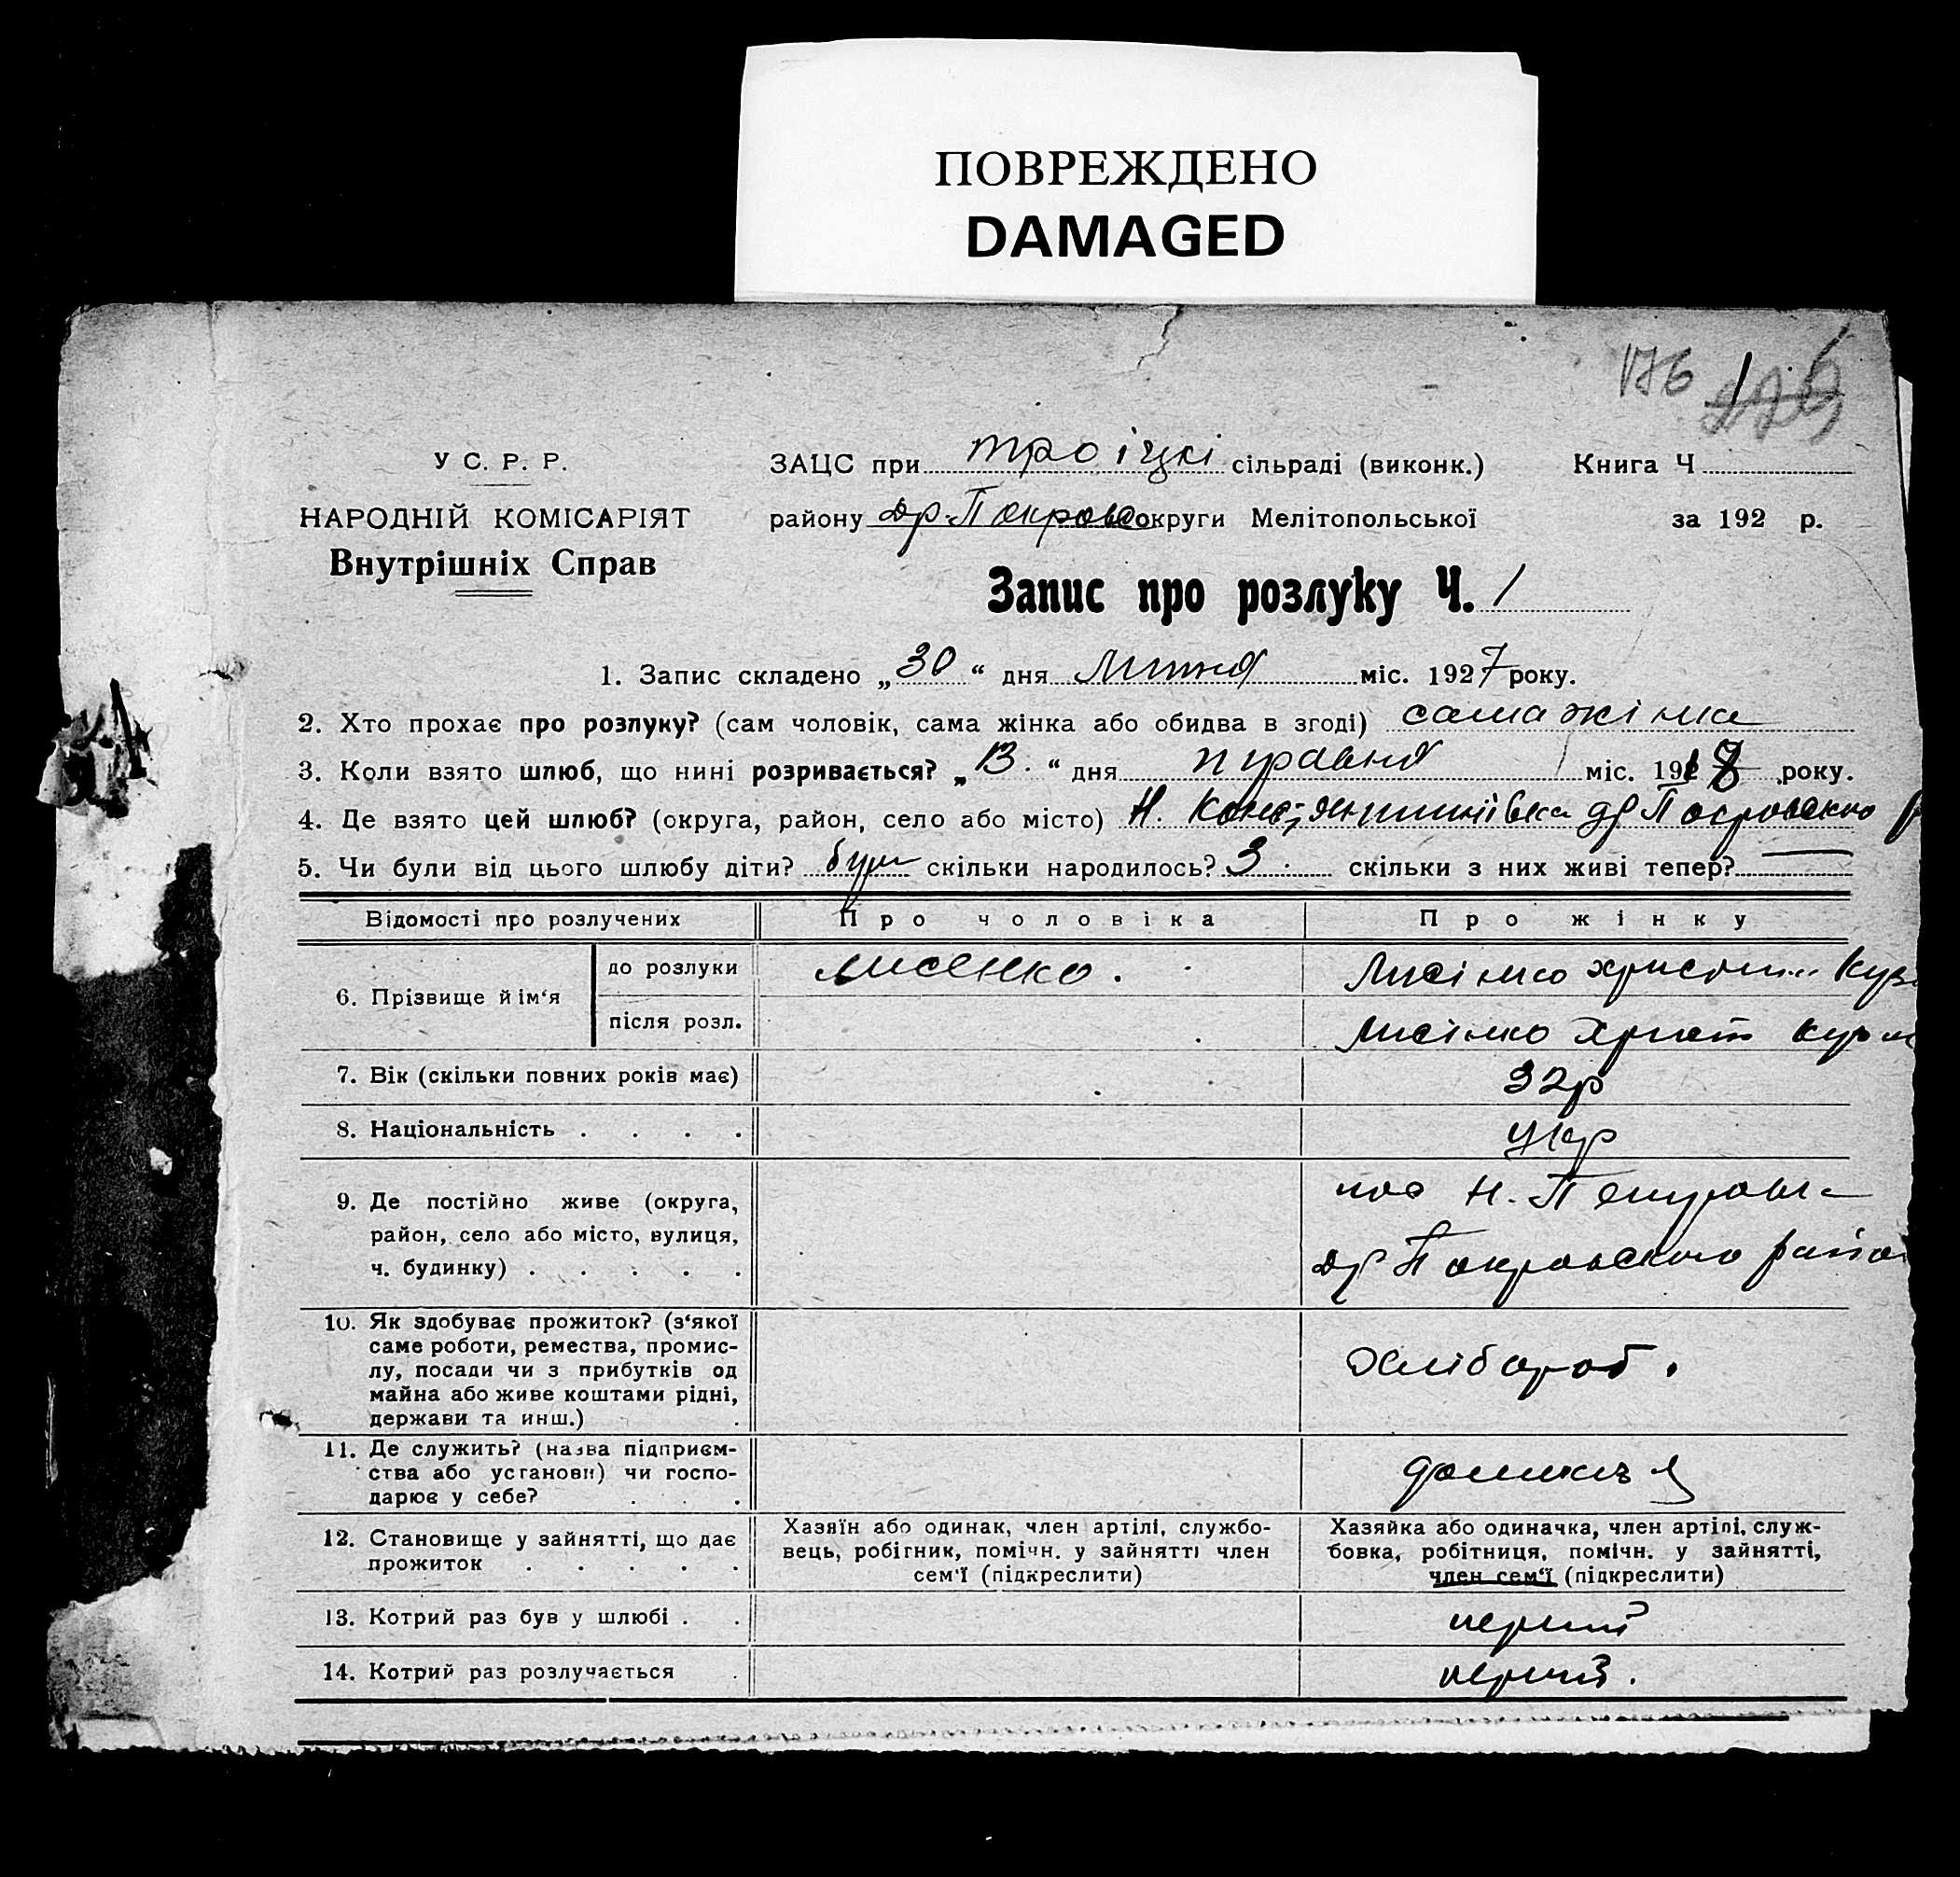 ПОВРЕЖДЕНО
DAMAGED
176
У С. Р. Р.
НАРОДНІЙ КОМІСАРІЯТ
Внутрішніх Справ
ЗАЦС при Троіцкі сільраді (виконк.) Книга Ч
району Др. Покровс округи Мелітопольської за 192 р.
Запис про розлуку Ч. 1
1. Запис складено „30“ дня Липня міс. 1927 року.
2. Хто прохає про розлуку? (сам чоловік, сама жінка або обидва в згоді) сама жінка
3. Коли взято шлюб, що нині розривається? „13.“ дня міс. 191 року.
4. Де взято цей шлюб? (округа, район, село або місто) Н. Константинівка др Покровского
5. Чи були від цього шлюбу діти? були скільки народилось? 3. скільки з них живі тепер? —
Відомості про розлучених Про чоловіка Про жінку
6. Прізвище й ім‘я
до розлуки Лисенко. Лисінко Христин
після розл. Лисінко Христ
7. Вік (скільки повних років має) 32р
8. Національність . . . . укр
9. Де постійно живе (округа, район, село або місто, вулиця, ч. будинку) . . . . .
пос Н. Петровка
др Покровского райо
10. Як здобуває прожиток? (з‘якої саме роботи, ремества, промислу, посади чи з прибутків од майна або живе коштами рідні, держави та инш.) .
Хлібороб.
11. Де служить? (назва підприємства або установи) чи господарює у себе? . . .
12. Становище у зайнятті, що дає прожиток . . . . .
Хазяїн або одинак, член артілі, службовець, робітник, помічн. у зайнятті член сем‘ї (підкреслити)
Хазяйка або одиначка, член артілі, службовка, робітниця, помічн. у зайнятті, член сем‘ї (підкреслити)
13. Котрий раз був у шлюбі . . перший
14. Котрий раз розлучається . перший.